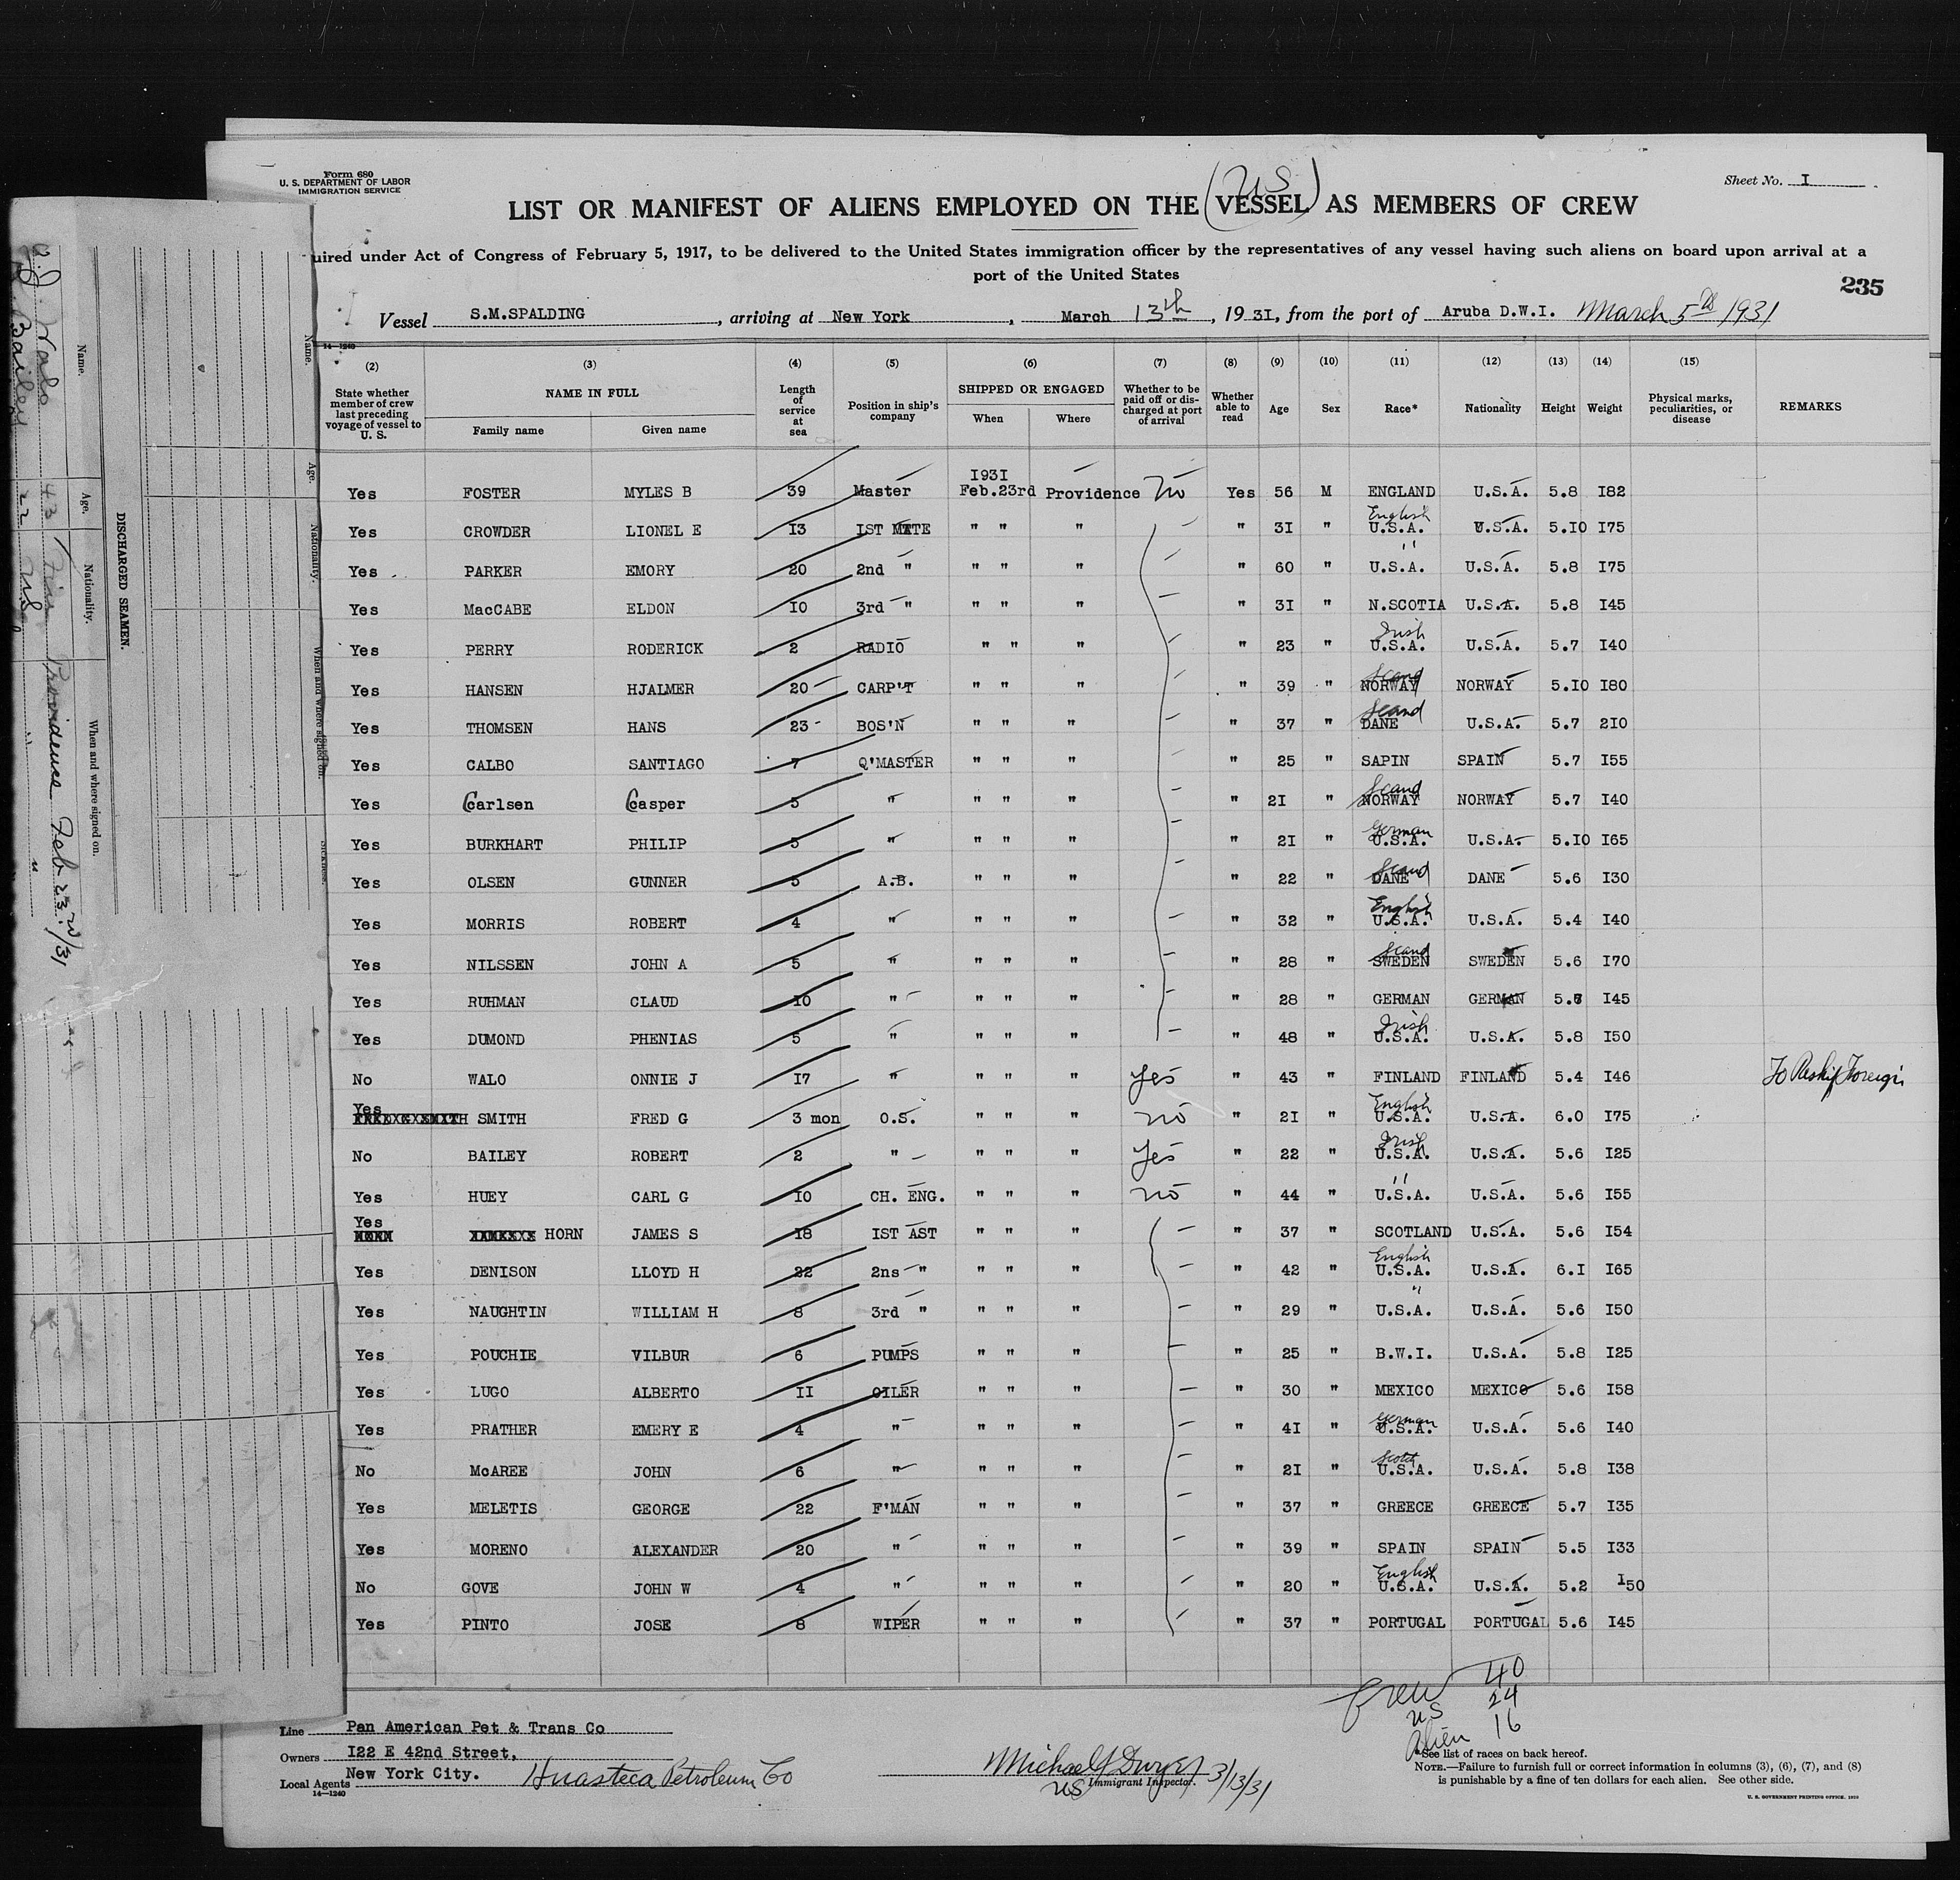 Form 680
U. S. DEPARTMENT OF LABOR
IMMIGRATION SERVICE
Sheet No. I
(US)
LIST OR MANIFEST OF ALIENS EMPLOYED ON THE VESSEL AS MEMBERS OF CREW
uired under Act of Congress of February 5, 1917, to be delivered to the United States immigration officer by the representatives of any vessel having such aliens on board upon arrival at a
port of the United States
235
Vessel S.M.SPALDING, arriving at New York, March 13th, 1931, from the port of Aruba D.W.I. March 5th 1931
14—1240
(2) (3) (4) (5) (6) (7) (8) (9) (10) (11) (12) (13) (14) (15)
State whether member of crew last preceding voyage of vessel to U. S. NAME IN FULL Family name Given name Length of service at sea Position in ship's company SHIPPED OR ENGAGED When Where Whether to be paid off or discharged at port of arrival Whether able to read Age Sex Race* Nationality Height Weight Physical marks, peculiarities, or disease REMARKS
Yes FOSTER MYLES B 39 Master 1931 Feb.23rd Providence No Yes 56 M ENGLAND U.S.A. 5.8 I82
Yes CROWDER LIONEL E I3 IST MTTE " " " " 3I " English U.S.A. U.S.A. 5.I0 I75
Yes PARKER EMORY 20 2nd " " " " " 60 " " U.S.A. U.S.A. 5.8 I75
Yes MacCABE ELDON I0 3rd " " " " " 3I " N.SCOTIA U.S.A. 5.8 I45
Yes PERRY RODERICK 2 RADIO " " " " 23 " Irish U.S.A. U.S.A. 5.7 I40
Yes HANSEN HJALMER 20 CARP'T " " " " 39 " Scand NORWAY NORWAY 5.I0 I80
Yes THOMSEN HANS 23 BOS'N " " " " 37 " Scand DANE U.S.A. 5.7 2I0
Yes CALBO SANTIAGO 7 Q'MASTER " " " " 25 " SAPIN SPAIN 5.7 I55
Yes Carlsen Casper 5 " " " " " 2I " Scand NORWAY NORWAY 5.7 I40
Yes BURKHART PHILIP 5 " " " " " 2I " German U.S.A. U.S.A. 5.I0 I65
Yes OLSEN GUNNER 5 A.B. " " " " 22 " Scand DANE DANE 5.6 I30
Yes MORRIS ROBERT 4 " " " " " 32 " English U.S.A. U.S.A. 5.4 I40
Yes NILSSEN JOHN A 5 " " " " " 28 " Scand SWEDEN SWEDEN 5.6 I70
Yes RUHMAN CLAUD I0 " " " " " 28 " GERMAN GERMAN I45
Yes DUMOND PHENIAS 5 " " " " " 48 " Irish U.S.A. U.S.A. 5.8 I50
No WALO ONNIE J I7 " " " " Yes " 43 " FINLAND FINLAND 5.4 I46 To Reship Foreign
Yes SMITH FRED G 3 mon O.S. " " " no " 2I " English U.S.A. U.S.A. 6.0 I75
No BAILEY ROBERT 2 " " " " Yes " 22 " Irish U.S.A. U.S.A. 5.6 I25
Yes HUEY CARL G I0 CH. ENG. " " " no " 44 " " U.S.A. U.S.A. 5.6 I55
Yes HORN JAMES S I8 IST AST " " " " 37 " SCOTLAND U.S.A. 5.6 I54
Yes DENISON LLOYD H 22 2ns " " " " " 42 " English U.S.A. U.S.A. 6.I I65
Yes NAUGHTIN WILLIAM H 8 3rd " " " " " 29 " " U.S.A. U.S.A. 5.6 I50
Yes POUCHIE VILBUR 6 PUMPS " " " " 25 " B.W.I. U.S.A. 5.8 I25
Yes LUGO ALBERTO II OILER " " " " 30 " MEXICO MEXICO 5.6 I58
Yes PRATHER EMERY E 4 " " " " " 4I " German U.S.A. U.S.A. 5.6 I40
No McAREE JOHN 6 " " " " " 2I " Scotch U.S.A. U.S.A. 5.8 I38
Yes MELETIS GEORGE 22 F'MAN " " " " 37 " GREECE GREECE 5.7 I35
Yes MORENO ALEXANDER 20 " " " " " 39 " SPAIN SPAIN 5.5 I33
No GOVE JOHN W 4 " " " " " 20 " English U.S.A. U.S.A. 5.2 I50
Yes PINTO JOSE 8 WIPER " " " " 37 " PORTUGAL PORTUGAL 5.6 I45
Crew 40
US 24
Alien 16
Line Pan American Pet & Trans Co
Owners I22 E 42nd Street,
New York City.
Local Agents Huasteca Petroleum Co
14—1240
Michael J Dwyer 3/13/31
US Immigrant Inspector.
*See list of races on back hereof.
NOTE.—Failure to furnish full or correct information in columns (3), (6), (7), and (8)
is punishable by a fine of ten dollars for each alien. See other side.
U. S. GOVERNMENT PRINTING OFFICE.
DISCHARGED SEAMEN.
Name. Age. Nationality. When and where signed on.
O.J. Walo 43 Finn Providence Feb 23rd/31
R. Bailey 22 US " "
Name. Age. Nationality. When and where signed on. Sickness.